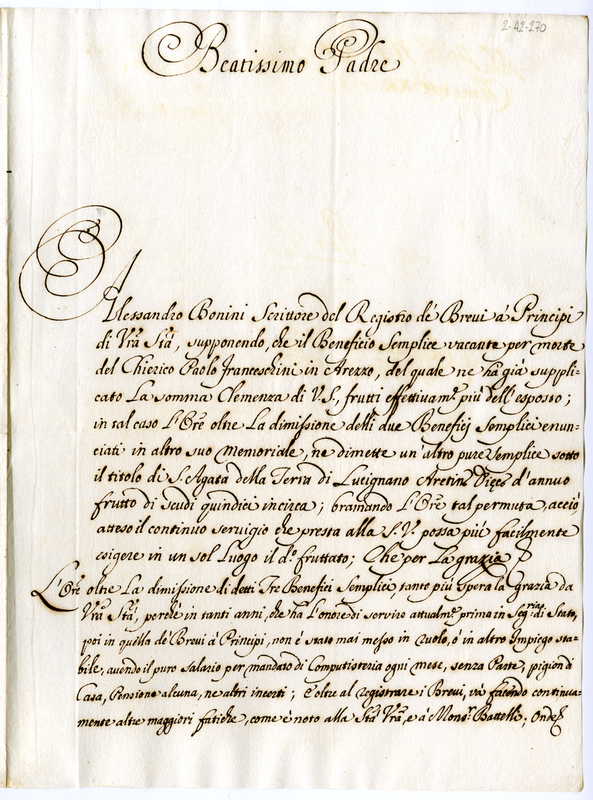 2-42-270
Beatissimo Padre
Alessandro Bonini Scrittore del Registro de' Brevi à Principi
di Vrã Stà, supponendo, che il Beneficio Semplice vacante per morte
del Chierico Paolo Franceschini in Arezzo, del quale ne hà già suppli-
cato La somma Clemenza di V. S., frutti effettivamẽ più dell' esposto;
in tal caso L'Orẽ oltre La dimissione delli due Beneficj Semplici enun-
ciati in altro suo Memoriale, ne dimette un' altro pure Semplice sotto
il titolo di S. Agata della Terra di Lucignano Aretinẽ d'annuo
frutto di Scudi quindici incirca; bramando L'Orẽ tal permuta, acciò
atteso il continuo servigio che presta alla S. V. possa più facilmente
esigere in un sol Luogo il dº. fruttato; Che per La grazia
L'Orẽ oltre La dimissione di detti Tre Benefici Semplici, tanto più spera la grazia da
Vrã Stà, perche in tanti anni, che hà l'onore di servire attualmẽ prima in Segria di Stato,
poi in quella de' Brevi à Principi, non è stato mai messo in ruolo, ò in altro Impiego sta-
bile, avendo il puro Salario per mandato di Computisteria ogni mese, senza Parte, pigion di
Casa, Pensione alcuna, ne altri incerti; e oltre al registrare i Brevi, và facendo continua-
mente altre maggiori fatiche, come è noto alla Stà Vrã, e à Monsr. Battelli; Onde